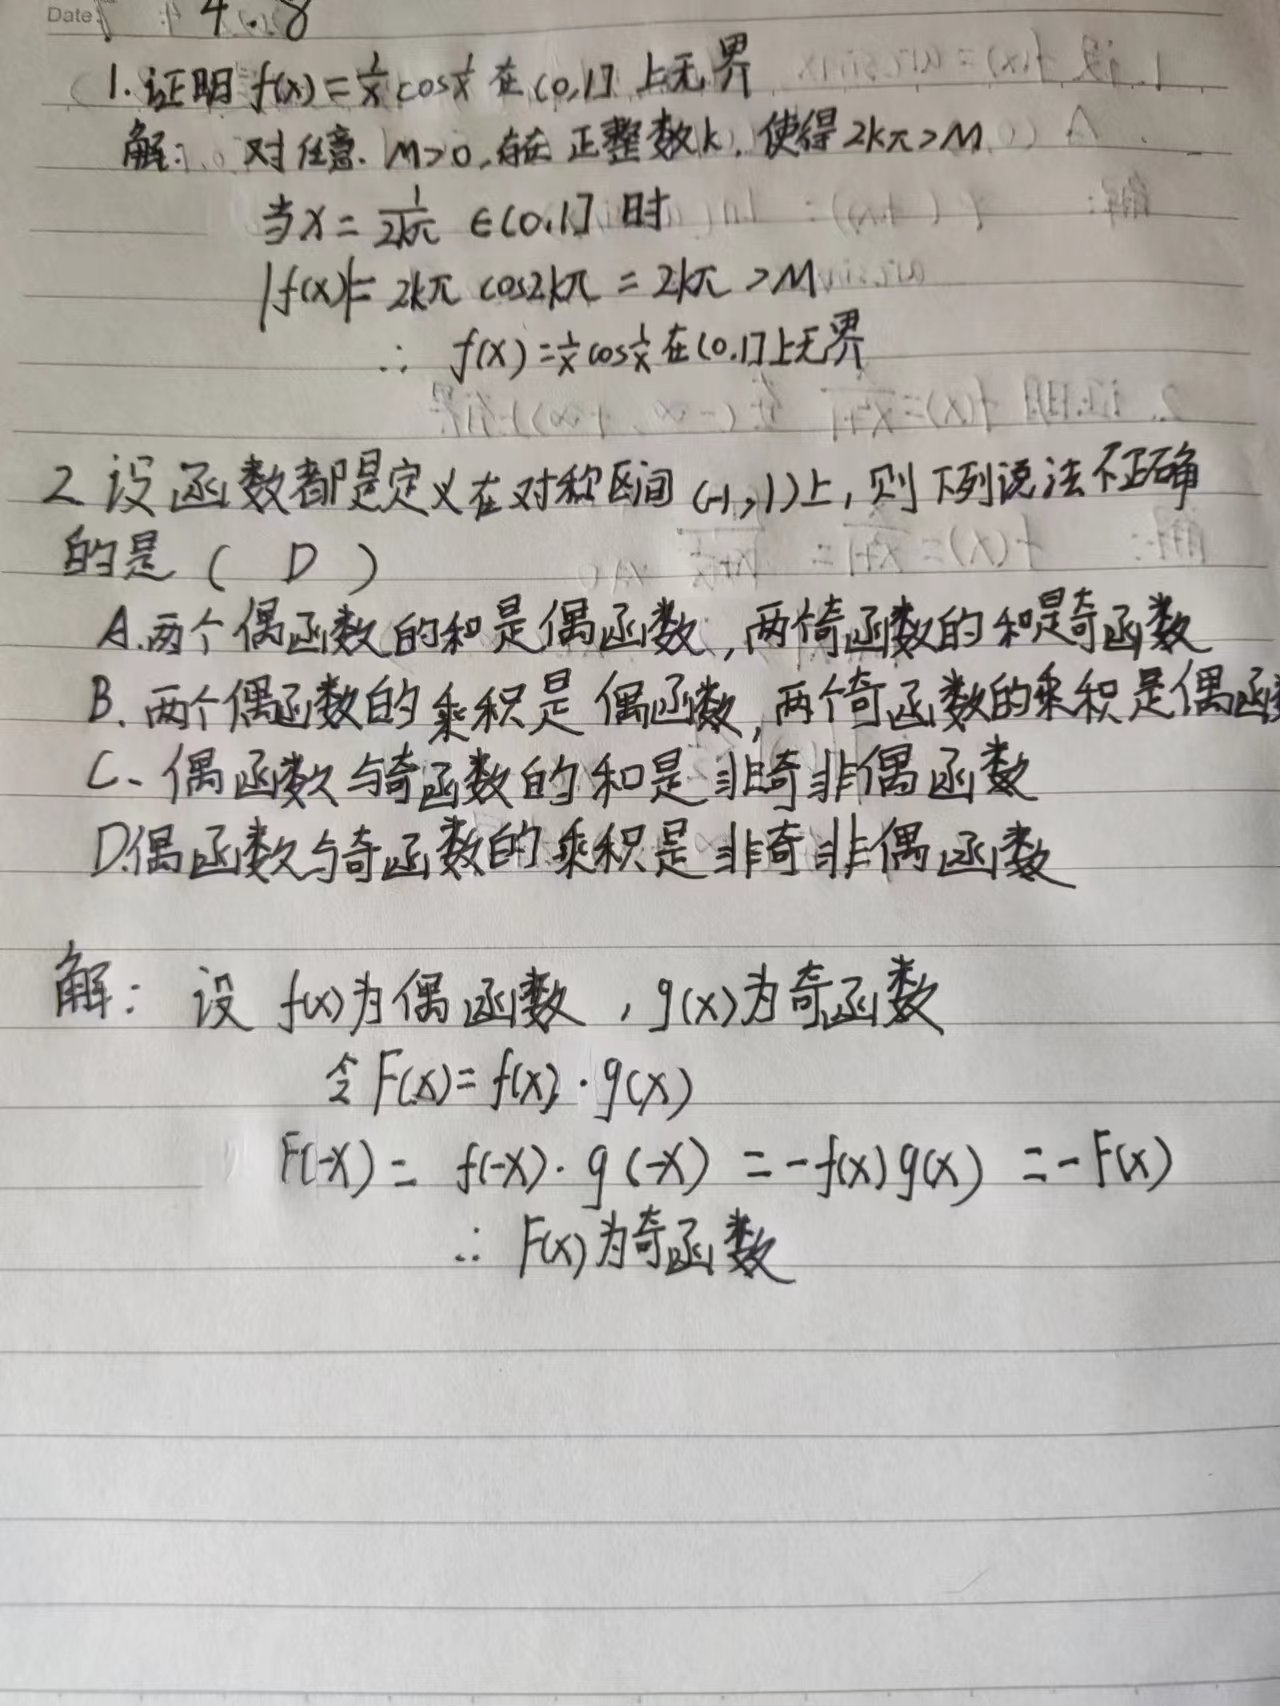 Date:
4.8
1.证明 f(x)=1/x cos1/x 在(0,1]上无界
解: 对任意. M>0,存在正整数k, 使得2kπ>M
当x=1/2kπ ∈(0,1]时
|f(x)|= 2kπ cos2kπ = 2kπ >M
∴ f(x)=1/x cos1/x 在(0,1]上无界
2 设函数都是定义在对称区间(-1,1)上,则下列说法不正确
的是( D )
A.两个偶函数的和是偶函数,两个奇函数的和是奇函数
B.两个偶函数的乘积是偶函数,两个奇函数的乘积是偶函数
C、偶函数与奇函数的和是非奇非偶函数
D.偶函数与奇函数的乘积是非奇非偶函数
解: 设 f(x)为偶函数,g(x)为奇函数
令F(x)=f(x)·g(x)
F(-x)= f(-x)·g(-x) =-f(x)g(x) =-F(x)
∴ F(x)为奇函数